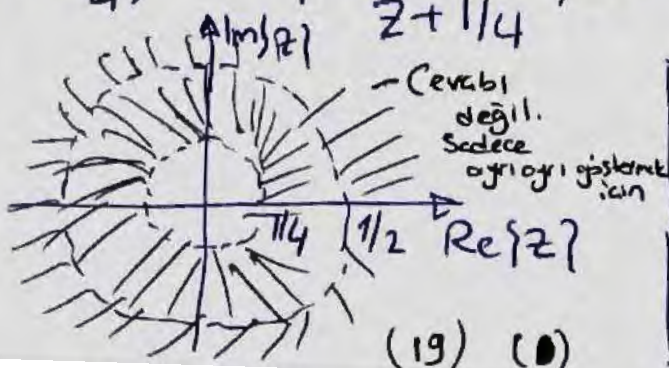 z + 1/4
Im{z}
- Cevabı
değil.
Sadece
ayrı ayrı göstermek
için
1/4 1/2 Re{z}
(19)